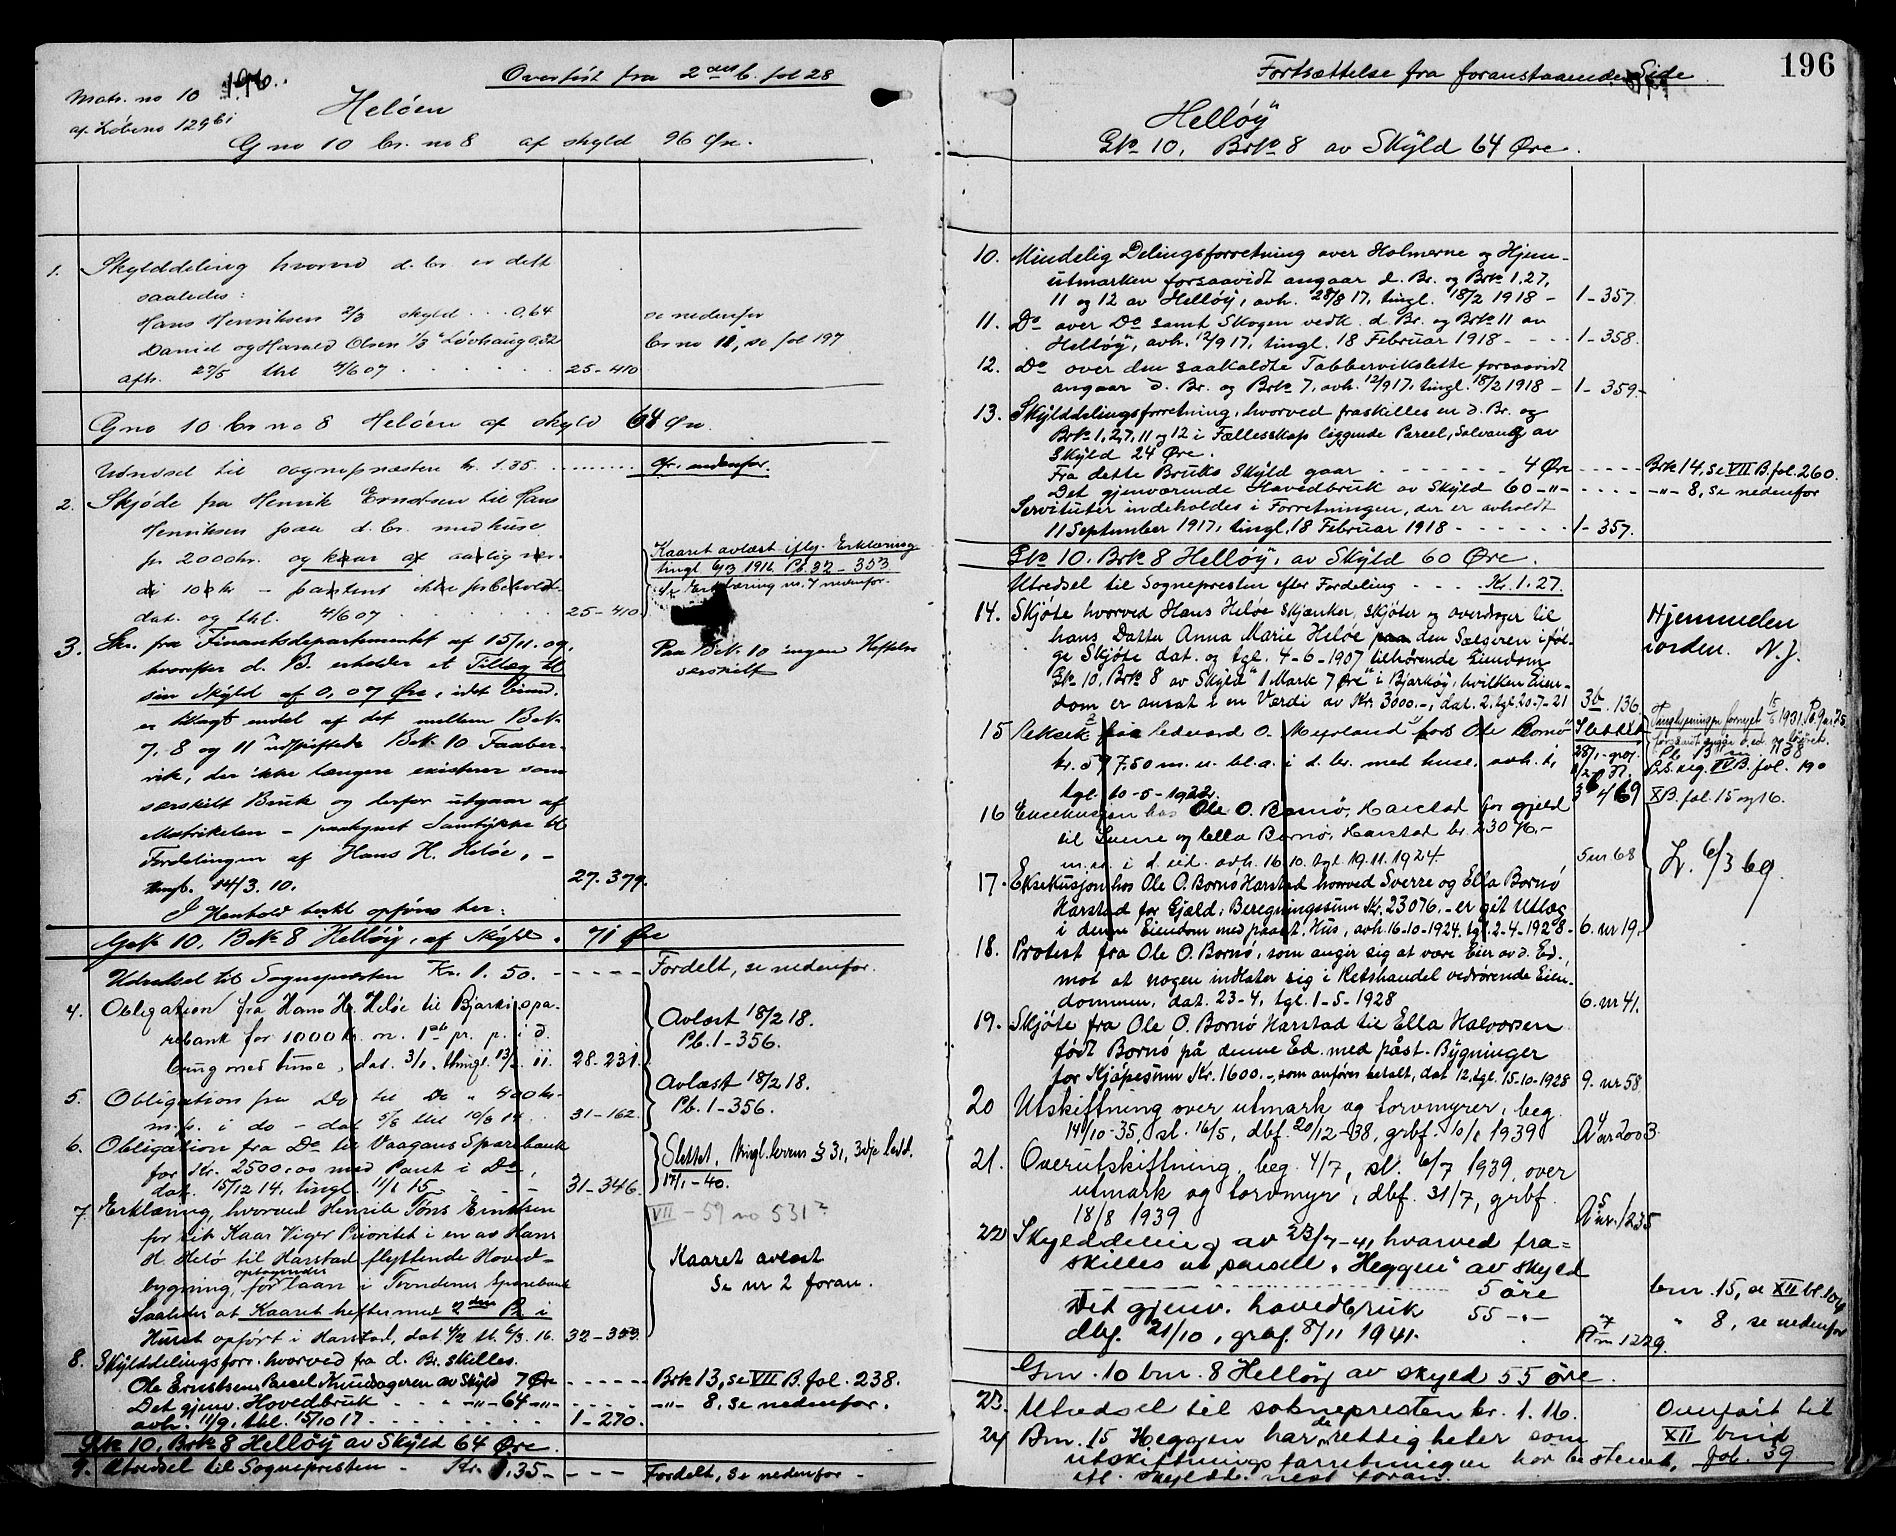 Overført fra 2den b. fol 28
Matr. no 10 196.
af Løbeno 129bi
Heløen
G no 10 br. no 8 af skyld 96 Øre.
1. Skylddeling hvorved d. br. er delt
saaledes:
Hans Henriksen 2/3 skyld . . . 0,64 se nedenfor
Daniel og Harald Olsen 1/3 "Løvhaug" 0,32 br no 11, se fol 197
afh. 27/5 thl 4/6 07 . . . . . . 25-410
G no 10 br no 8 Heløen af skyld 64 Øre.
Udredsel til sognepræsten kr. 1.35 . . . . . . . cfr. nedenfor.
2. Skjøde fra Henrik Erntsen til Hans
Henriksen paa d. br. med huse
for 200 kr. og kaar af aarlig vær-
di 10 kr - pantent ikke forbeholdt
dat. og thl. 4/6 07 . . . . . . . 25-410
Kaaret avlæst iflg. Erklæring
tingl 6/3 1916 Pb. 32 - 353
se Erklæring no. 7 nedenfor.
3. Skr. fra Finantsdepartementet af 15/11.09,
hvorefter d. B. erholder et Tillæg til
sin Skyld af 0,07 Øre, idet Eiend.
er tillagt endel af det mellem Brk.
7, 8 og 11 udskiftede Brk. 10 Faaber-
vik, der ikke længere existerer som
særskilt Bruk og derfor utgaar af
Matrikelen - paategnet Samtykke til
Fordelingen af Hans H. Heløe, -
tingl. 14/3. 10. 27. 379.
Paa Brk. 10 ingen Heftelse
særskilt
I Henhold hertil opføres her:
Gno 10. Brk. 8 Helløy, af Skyld. 71 Øre
Udredsel til Sognepræsten Kr. 1. 50. - - - - - - Fordelt, se nedenfor.
4. Obligation fra Hans H. Heløe til Bjarkø spa-
rebank for 1000 kr. m. 1ste pr. p. i d.
brug med huse, dat. 3/1, tingl. 13/2 11. 28. 231.
Avlæst 18/2 18.
Pb. 1-356.
5. Obligation fra Do til Do " 400 kr.
m. p. i do - dat. 5/8 thl 10/8 14. 31-162.
Avlæst 18/2 18.
Pb. 1-356.
6. Obligation fra Do til Vaagans Sparebank
for Kr. 2500,00 med Pant i Do,
dat. 15/12 14, tingl. 11/1 15 - - - 31-346.
Slettet, tingl.lovens § 31, 3dje ledd.
17/1-40.
7. Erklæring, hvorved Henrik Tøns Erntsen
for sit Kaar Viger Prioritet i en av Hans
H. Helø til Harstad flyttende Hoved-
bygning, for optagendes laan i Trondenes Sparebank
Saaledes at Kaaret hefter med 2den Pr. i
Huset opført i Harstad, dat 4/2 tl. 6/3. 16. 32-353.
VII - 59 no 531?
Kaaret avlæst
Se nr 2 foran.
8. Skylddelingsforr. hvorved fra d. Br. skilles.
Ole Erntsens Parcel Knudsageren av Skyld 7 Øre - - - - - - Brk 13, se VII B. fol. 238.
Det gjenv. Hovedbruk . . " -"- 64 -"- - - - - - -"- 8, se nedenfor.
avh. 11/9, thl. 15/10 17 - - - - - - - 1-270.
Gk 10, Brk 8 Helløy av Skyld 64 Øre.
9. Utredsel til Sognepresten - Kr. 1.35 - - - - Fordelt, se nedenfor -
Fortsættelse fra foranstaaende Side 196
Helløy
Gk 10, Brk 8 av Skyld 64 Øre.
10. Mindelig Delingsforretning over Holmerne og Hjem-
utmarken forsaavidt angaar d. Br. og Brk 1, 27,
11 og 12 av Helløy, avh. 28/8 17, tingl. 18/2 1918 - 1-357.
11. Do over Do samt Skogen vedk. d. Br. og Brk 11 av
Helløy, avh. 12/9 17, tingl. 18 Februar 1918 - - - - 1-358.
12. Do over den saakaldte Tabbervikslette forsaavidt
angaar d. Br. og Brk 7, avh. 12/9 17, tingl. 18/2 1918 - 1-359-
13. Skylddelingsforretning, hvorved fraskilles en d. Br. og
Brk 1, 2, 7, 11 og 12 i Fællesskap liggende Parcel, Solvang av
Skyld 24 Øre.
Fra dette Bruks Skyld gaar - - - - - - - 4 Øre - - - - - Brk 14, se VII B. fol. 260.
Det gjenværende Hovedbruk av Skyld 60 -"- - - - - - -"- 8, se nedenfor
Servituter indeholdes i Forretningen, der er avholdt
11 September 1917, tingl. 18 Februar 1918 - - - - - - 1-357.
Gk 10. Brk 8 Helløy, av Skyld 60 Øre.
Utredsel til Sognepresten efter Fordeling - - - Kr. 1.27.
14. Skjøte hvorved Hans Heløe skjænker, skjøter og overdrager til
hans Datter Anna Marie Heløe den Sælgeren iføl-
ge Skjøte dat. og tgl. 4-6-1907 tilhørende Eiendom
Gk 10, Brk 8 av Skyld "1 Mark 7 Øre" i Bjarkøy, hvilken Eien-
dom er ansat i en Værdi av Kr. 3000.-, dat. 2, tgl. 20-7-21 3b. 136
Hjemmelen
iorden. N.J.
15 Eksek. hos Edvard O. Myrland for Ole Bornø
kr. 577,50 m. u. bl. a. i d. br. med huse, avh. 1,
tgl. 10-5-1922.
Slettet
Tinglysningen fornyet
Pb. 9 nr 75
XB. fol. 15 og 16.
16 Eksekusjon hos Ole O. Bornø, Harstad for gjeld
til Sverre og Ella Bornø, Harstad kr. 23076.-
m. u. i d. eid. avh. 16.10. tgl 19.11.1924 5 nr 68
L. 6/3 69.
17. Eksekusjon hos Ole O. Bornø Harstad hvorved Sverre og Ella Bornø
Harstad for Gjæld, Beregningssum Kr. 23076.- er git Utlæg
i denne Eiendom med paast. Hus, avh. 16-10-1924, tgl. 2-4-1928- 6. nr 19.
18. Protest fra Ole O. Bornø, som angir sig at være Eier av d. Ed.,
mot at nogen indlater sig i Retshandel vedrørende Eien-
dommen, dat. 23-4, tgl. 1-5-1928 6. nr 41.
19. Skjøte fra Ole O. Bornø Harstad til Ella Halvorsen
født Bornø på denne Ed. med påst. Bygninger
for Kjøpesum Kr. 1600.-, som anføres betalt, dat 12, tgl. 15-10-1928 9. nr 58.
20 Utskiftning over utmark og torvmyrer, beg.
14/10-35, sl. 16/5, dbf. 20/12-38, grbf. 10/1 1939 A4 nr 2003.
21. Overutskiftning, beg. 4/7, sl. 6/7 1939, over
utmark og torvmyr, dbf. 31/7, grbf.
18/8 1939 A5 nr. 1235
22 Skylddeling av 23/7-41 hvorved fra=
skilles en parsell "Heggen" av skyld
5 øre bnr. 15, se XII bl. 104
Det gjenv. hovedbruk 55 -"- " 8, se nedenfor
dbf. 21/10, grbf. 8/11 1941. A7 nr 1229.
Gnr. 10 bnr. 8 Helløy av skyld 55 øre.
23. Utredsel til soknepresten kr. 1.16.
24 Bnr. 15 Heggen har de rettigheter som
utskiftningsforretningen har bestemt,
jfr. skyldd. nest foran.
Overført til
XII bind
fol. 39.